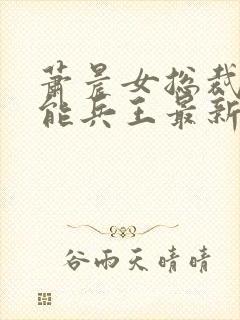 萧晨女总裁
能兵王最新
谷雨天晴晴